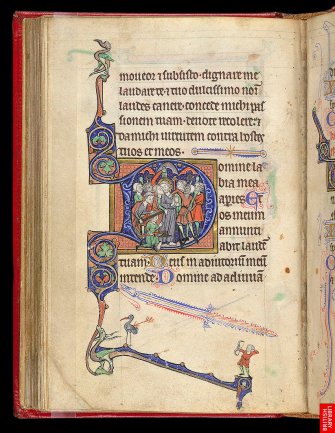 moveor et subsisto. dignare me
laudare te. et tuo dulcissimo noī
laudes canere. concede michi pas
sionem tuam. devote recolere. et
da michi virtutem contra hostes
tuos et meos.
omine la
bia mea
apies. Et
os meum
annunci
abit laudē
tuam. Deus in adiutoriū meū
intende. Domine ad adiuvā
BRITISH
LIBRARY